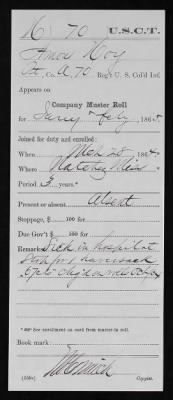 H 70 U.S.C.T.
Amos Hoy
Pt, Co. A, 70 Reg't U. S. Col'd Inf.
Appears on
Company Muster Roll
for Jan'y & Feb'y, 1865.
Joined for duty and enrolled:
When Mch 20, 1864.
Where Natchez Miss
Period 3 years.*
Present or absent Absent
Stoppage, $ 100 for
Due Gov't $ 100 for
Remarks: Sick in hospital at
Stop for 1 haversack
* See enrollment on card from muster-in roll.
Book mark:
(358c) Copyist.